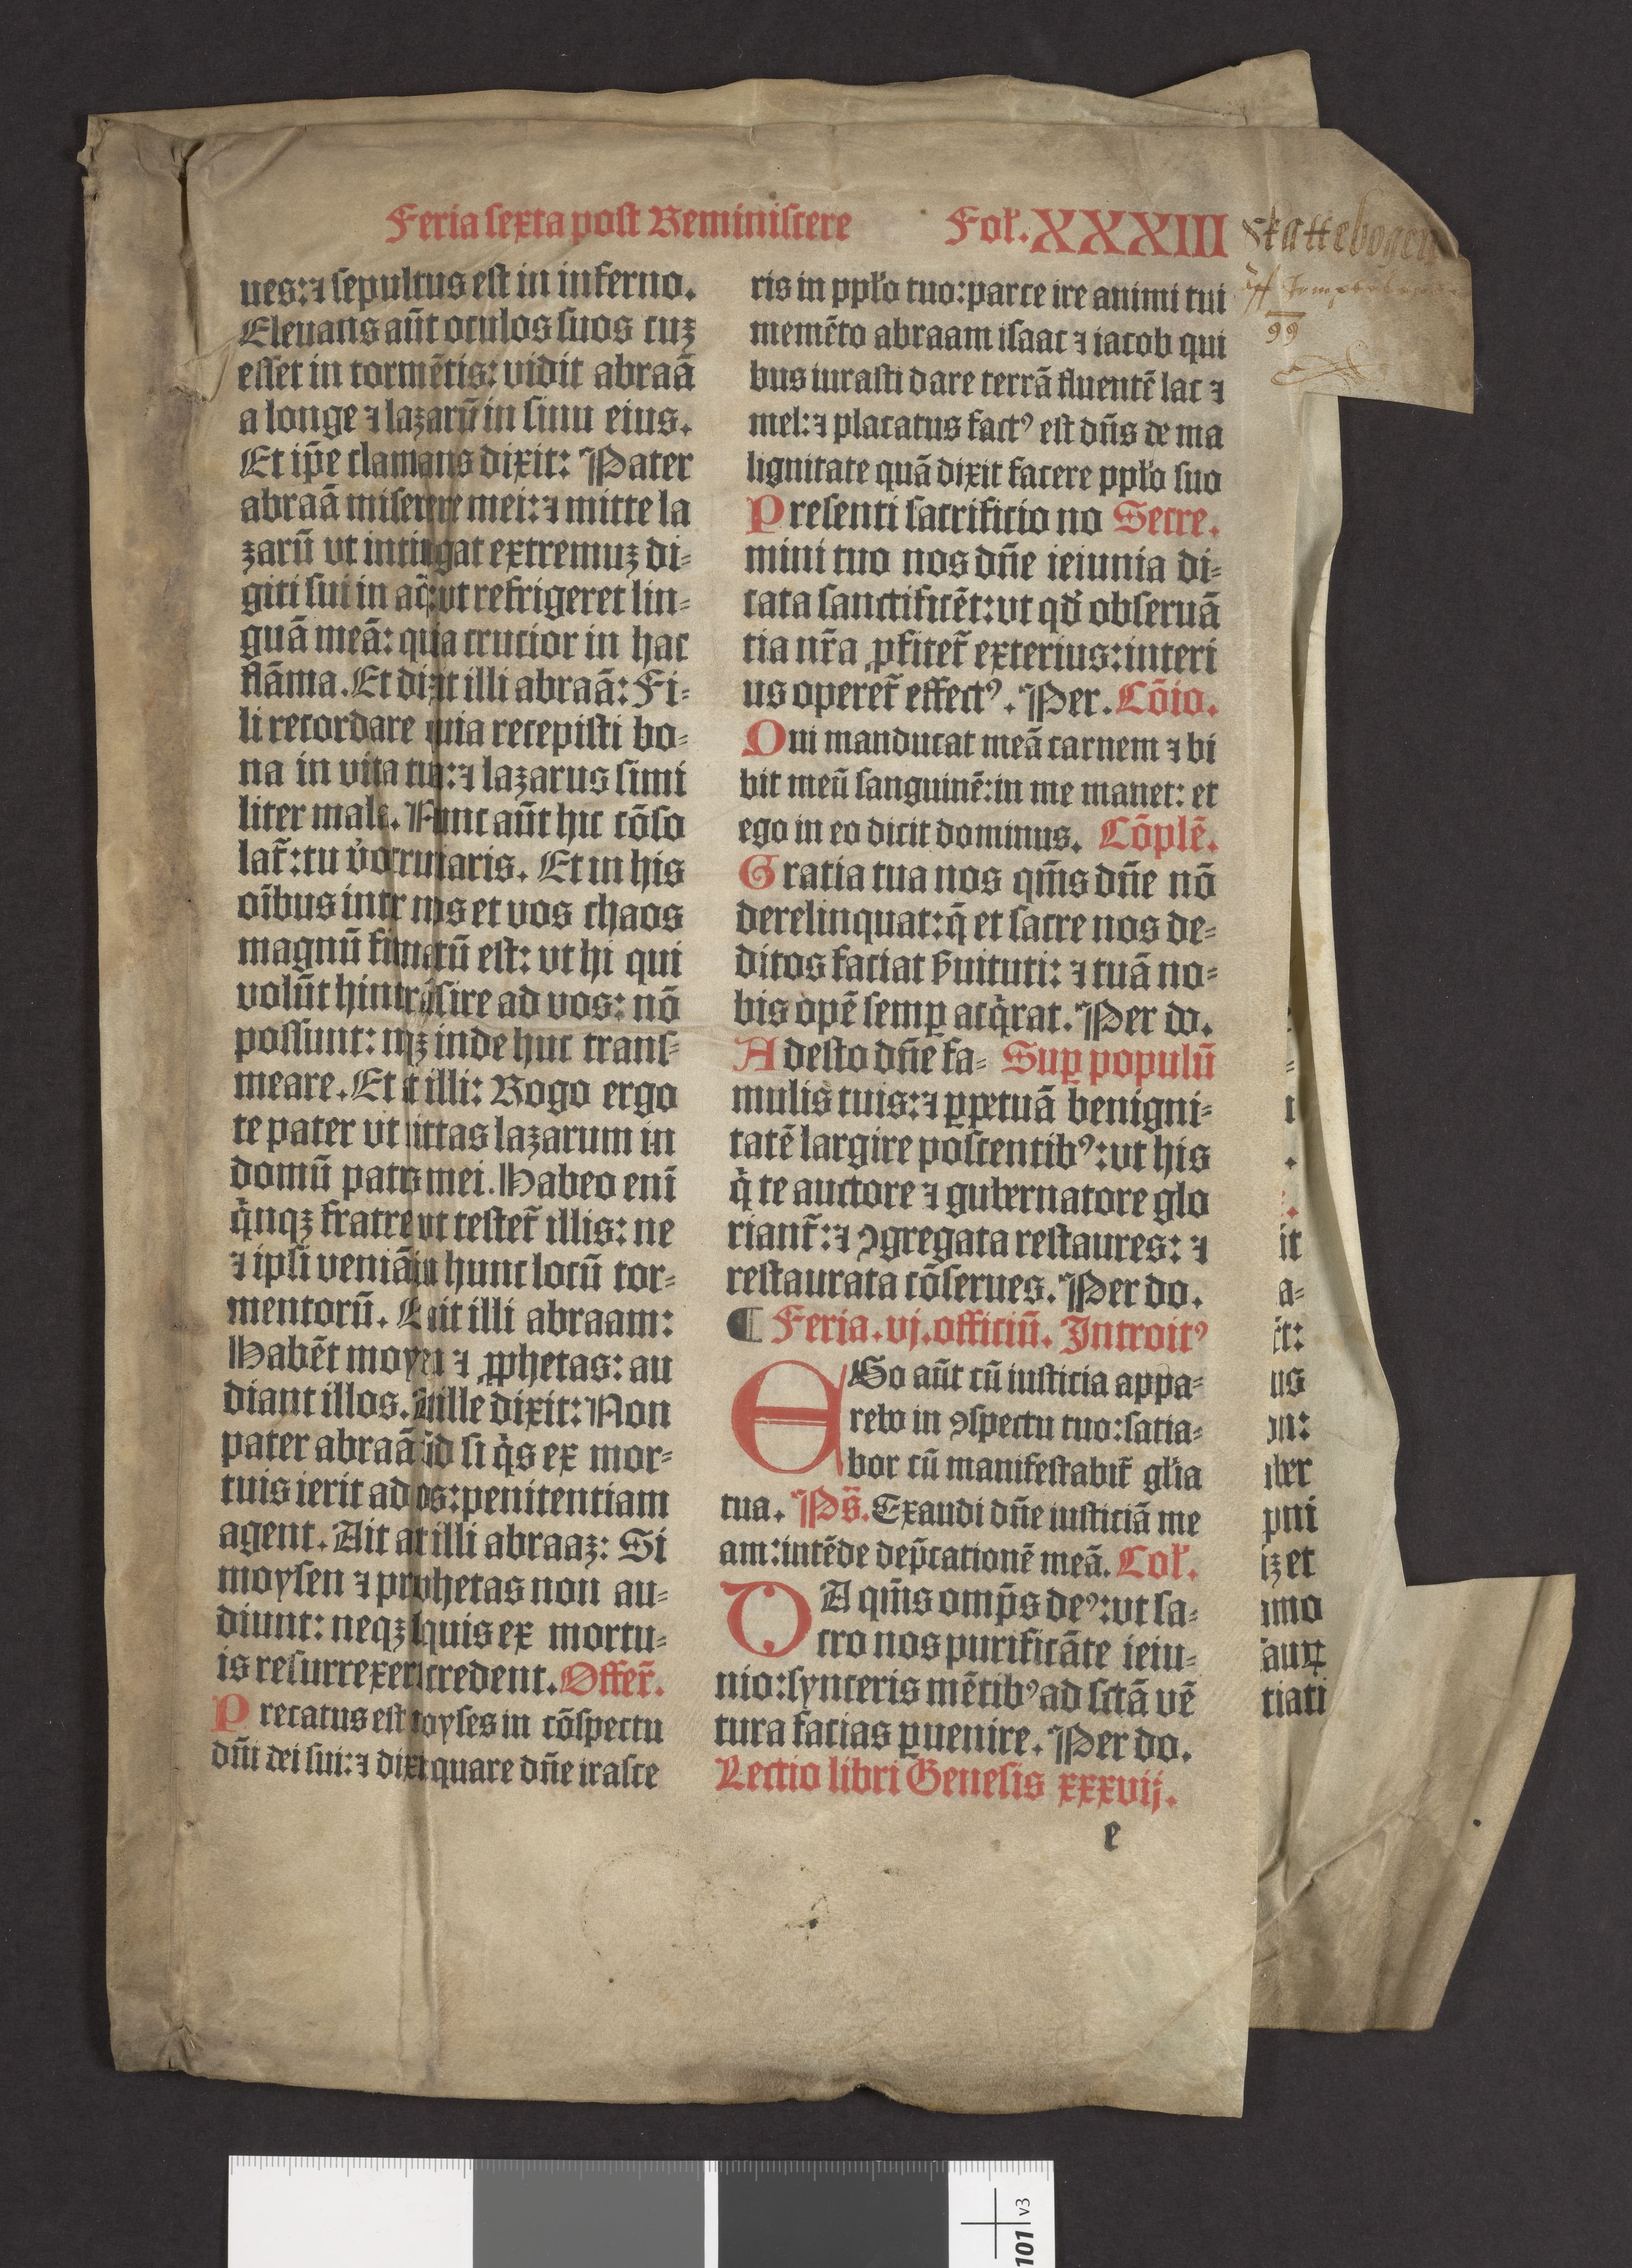 Feria sexta post Reminiscere Fol̕. XXXIII
ues: ⁊ sepultus est in inferno.
Eleuans aūt oculos suos cuꝫ
esset in tormētis: vidit abraā
a longe ⁊ lazarū in sinu eius.
Et ip̄e clamans dixit: Pater
abraā miserere mei: ⁊ mitte la
zarū vt intingat extremuꝫ di-
giti sui in aq̄: vt refrigeret lin-
guā meā: quia crucior in hac
flāma. Et dixit illi abraā: Fi-
li recordare quia recepisti bo-
na in vita tua: ⁊ lazarus simi
liter mala. Nunc aūt hic cōso
lat̄: tu v̓o cruciaris. Et in his
oībus inter nos et vos chaos
magnū firmatū est: vt hi qui
volūt hinc trāsire ad vos: nō
possunt: neqꝫ inde huc trans-
meare. Et ait illi: Rogo ergo
te pater vt mittas lazarum in
domū patris mei. Habeo enī
q̇nqꝫ fratres vt testet̄ illis: ne
⁊ ipsi veniāt in hunc locū tor-
mentorū. Et ait illi abraam:
Habēt moysen ⁊ ꝓphetas: au
diant illos. At ille dixit: Non
pater abraā sꝫ si q̇s ex mor-
tuis ierit ad eos: penitentiam
agent. Ait aūt illi abraaꝫ: Si
moysen ⁊ prophetas non au-
diunt: neqꝫ si quis ex mortu-
is resurrexerit credent. Offer̄.
Precatus est moyses in cōspectu
dn̄i dei sui: ⁊ dixit quare dn̄e irasce
ris in ppl̕o tuo: parce ire animi tui
memēto abraam isaac ⁊ iacob qui
bus iurasti dare terrā fluentē lac ⁊
mel: ⁊ placatus factꝰ est dn̄s de ma
lignitate quā dixit facere ppl̕o suo
Presenti sacrificio no Secre.
mini tuo nos dn̄e ieiunia di-
cata sanctificēt: vt qd̓ obseruā
tia nr̄a ꝓfitet̄ exterius: interi
us operet̄ effectꝰ. Per. Cōio.
Qui manducat meā carnem ⁊ bi
bit meū sanguinē: in me manet: et
ego in eo dicit dominus. Cōplē.
Gratia tua nos qm̄s dn̄e nō
derelinquat: q̄ et sacre nos de-
ditos faciat ẜuituti: ⁊ tuā no-
bis opē semꝑ acq̇rat. Per do.
Adesto dn̄e fa- Suꝑ populū
mulis tuis: ⁊ ꝑpetuā benigni-
tatē largire poscentibꝰ: vt his
q̇ te auctore ⁊ gubernatore glo
riant̄: ⁊ ꝯgregata restaures: ⁊
restaurata cōserues. Per do.
¶ Feria. vj. officiū. Introitꝰ
EGo aūt cū iusticia appa-
rebo in ꝯspectu tuo: satia-
bor cū manifestabit̄ gl̕ia
tua. Ps̄. Exaudi dn̄e iusticiā me
am: intēde dep̄cationē meā. Col̕.
DA qm̄s omp̄s deꝰ: vt sa-
cro nos purificāte ieiu-
nio: synceris mētibꝰ ad sctā vē
tura facias ꝑuenire. Per do.
Lectio libri Genesis xxxvij.
e
Skattebogen
99
it
a-
us
pni
ꝫ et
tiati
101 v3